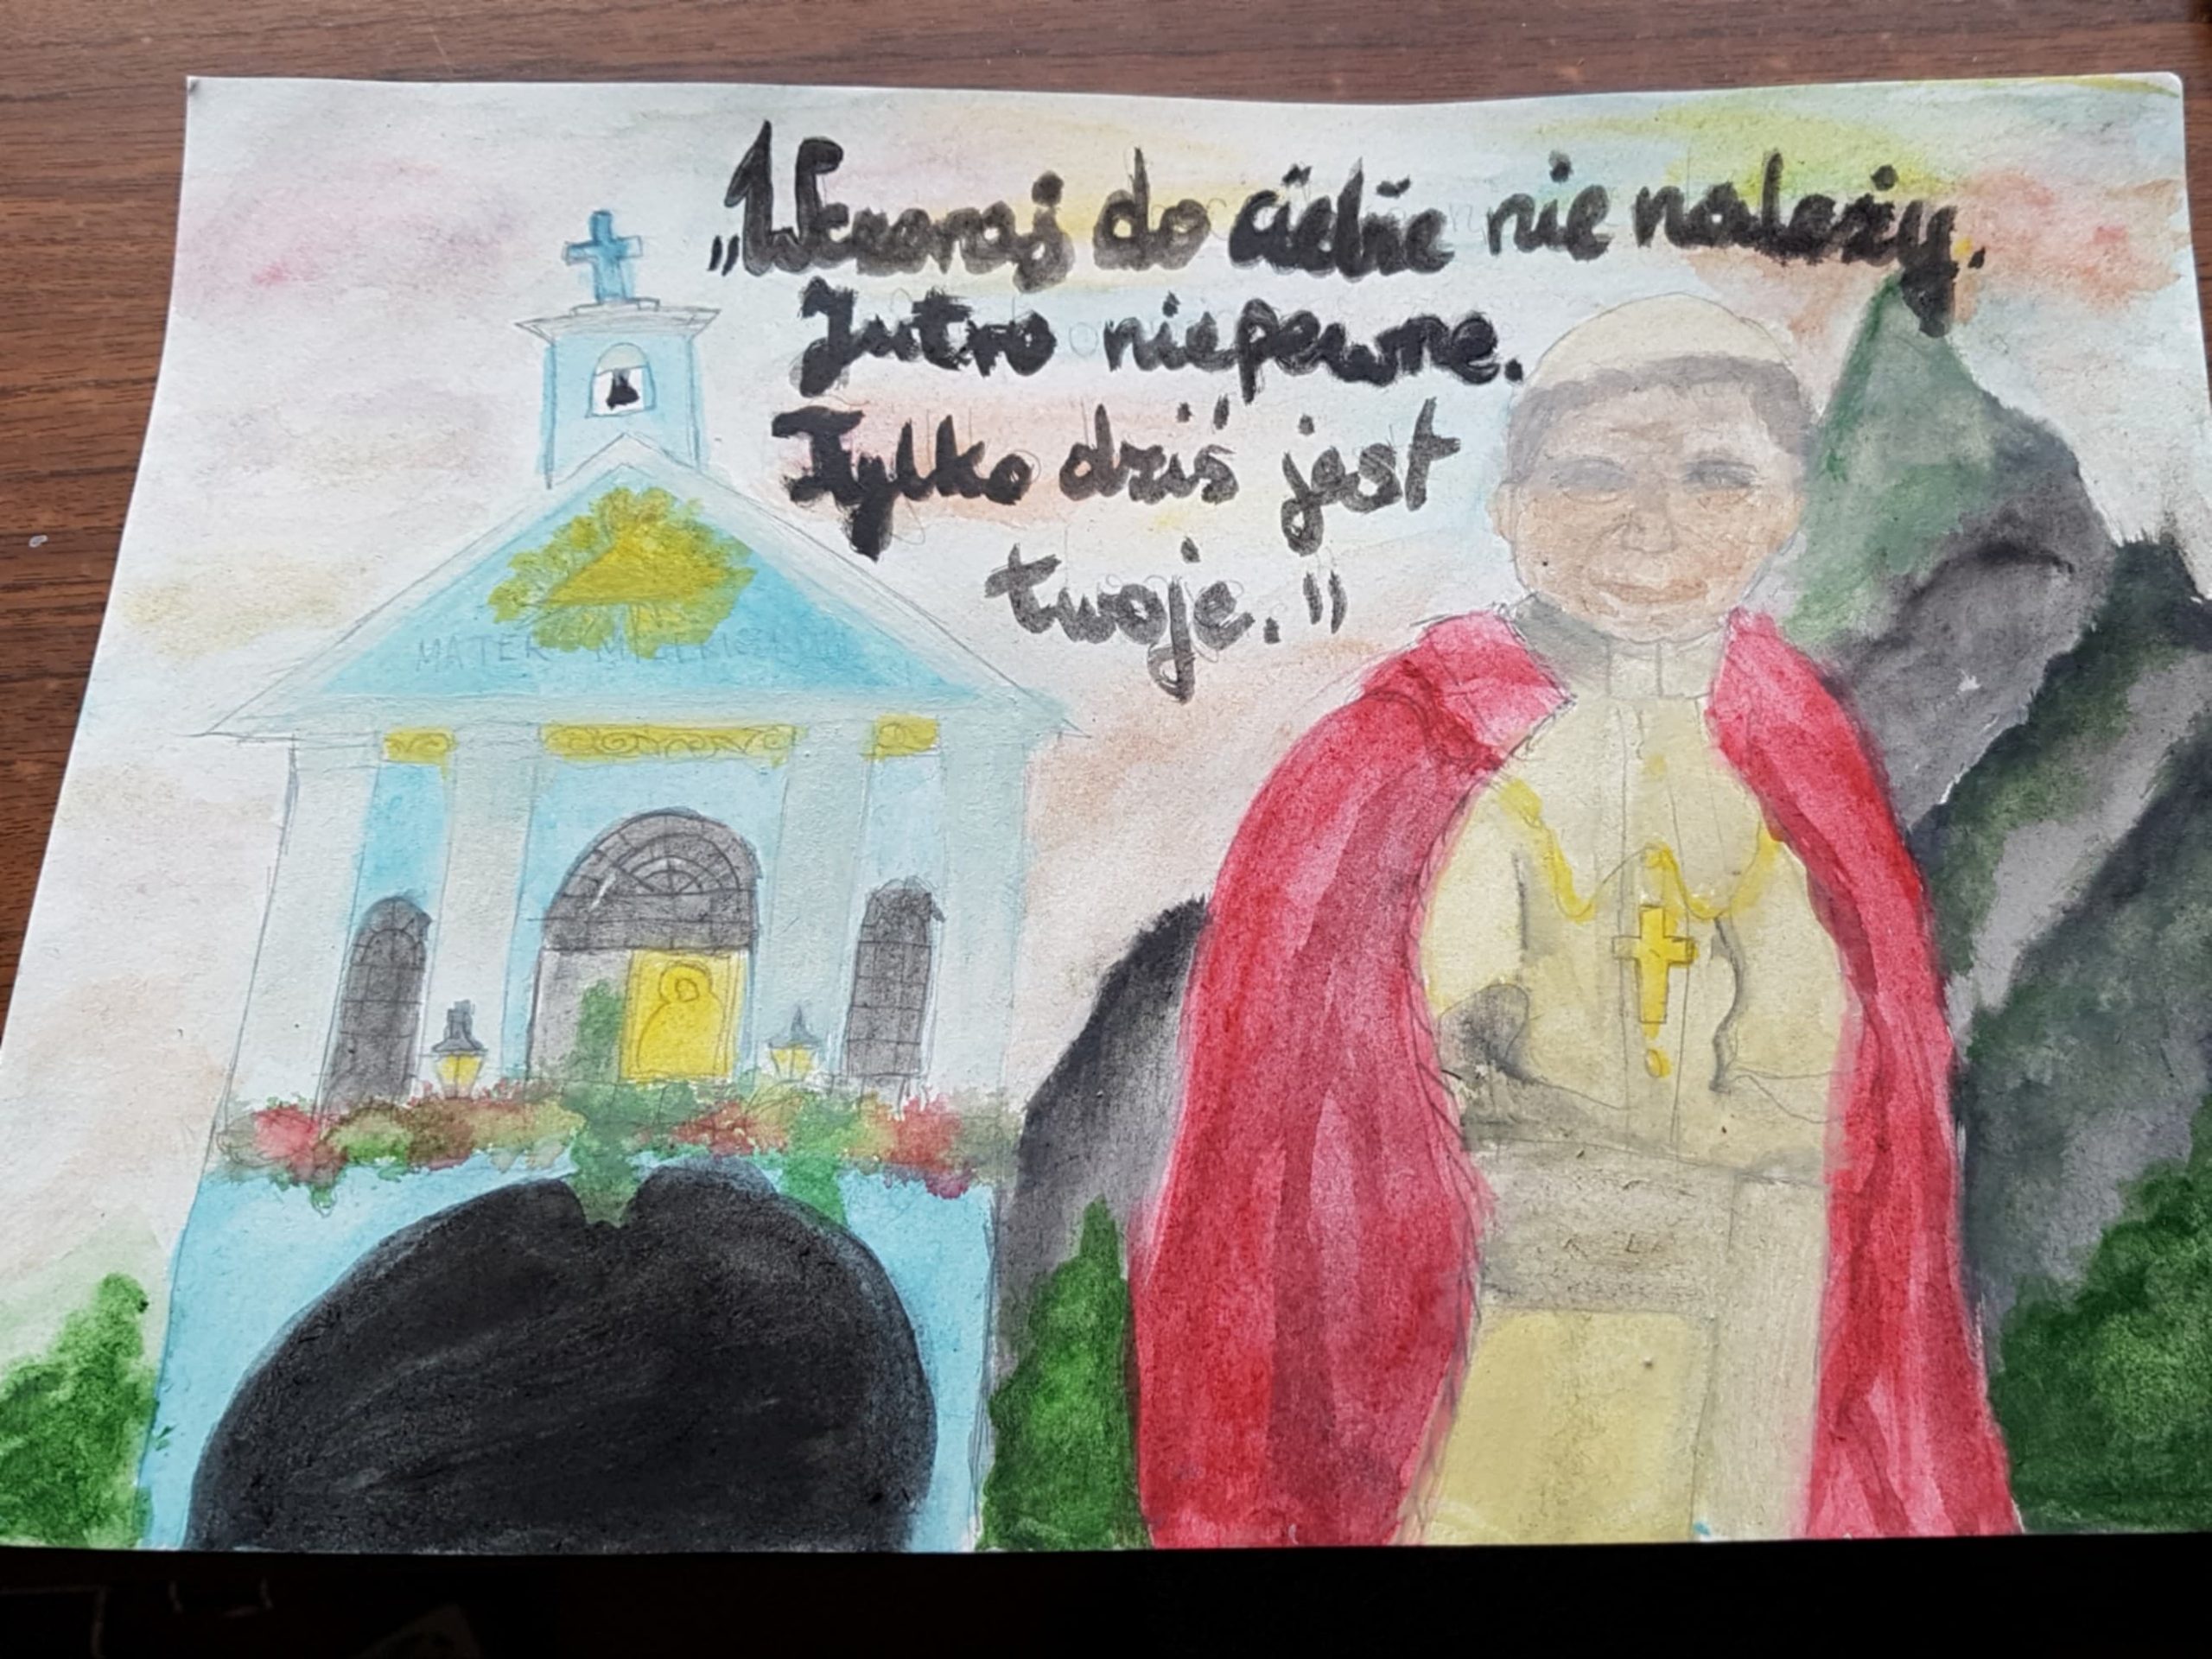 „Wczoraj do ciebie nie należy.
Jutro niepewne.
Tylko dziś jest
twoje.”
MATER